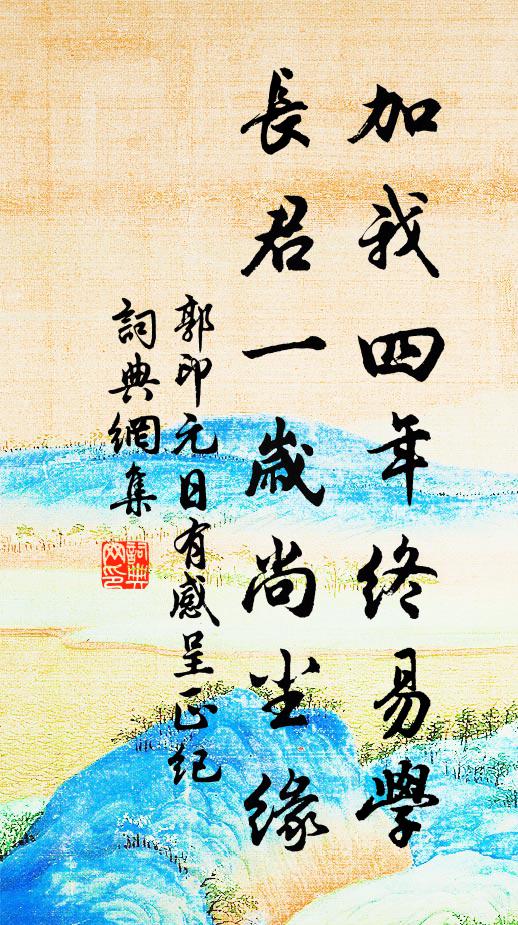 加我四年終易學
長君一歲尚尘緣
郭印元日有感呈正紀
詞典網集
詞典
网印